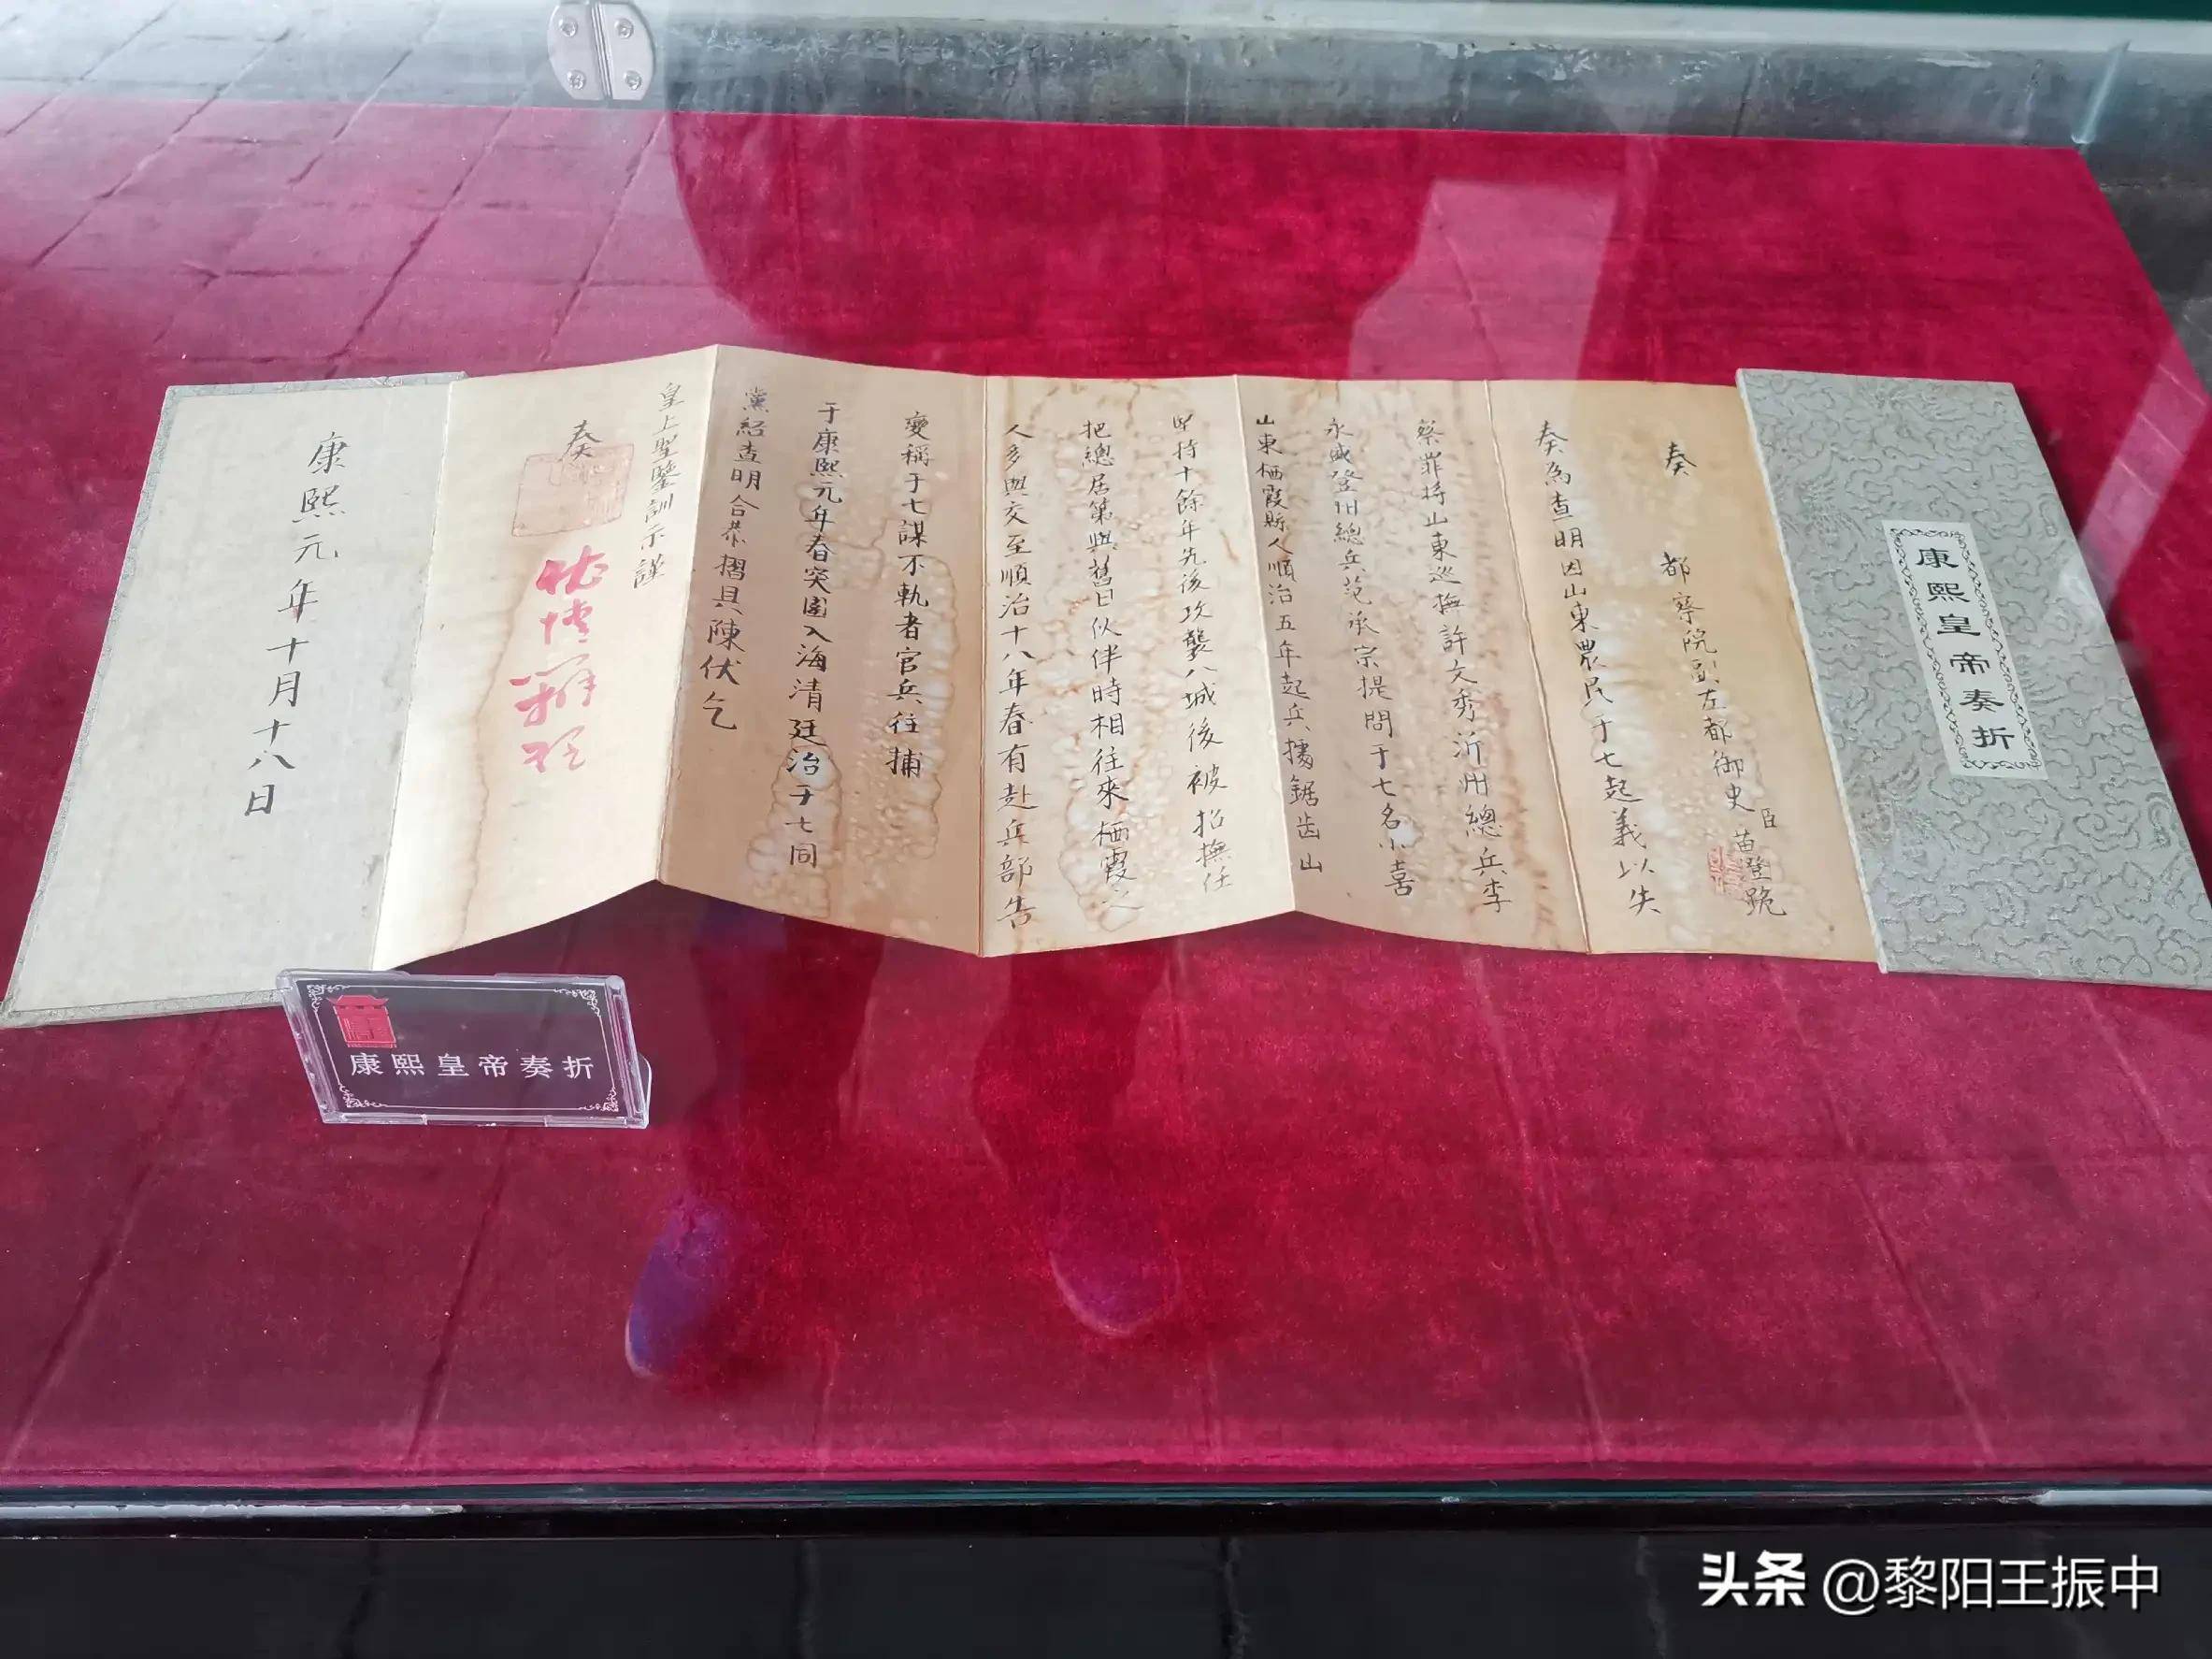 康熙皇帝奏折
奏
都察院副左都御史臣苗登跪
奏為查明因山東農民于七起義以失
察罪将山東巡撫許文秀沂州總兵李
永盛登州總兵范承宗提問于七名小喜
山東栖霞縣人順治五年起兵據鋸齿山
堅持十餘年先後攻襲八城後被招撫任
把總居第與舊日伙伴時相往來栖霞之
人多與交至順治十八年春有赴兵部告
變稱于七謀不軌者官兵往捕
于康熙元年春突圍入海清廷治于七同
黨紹查明合恭摺具陳伏乞
皇上聖鑒訓示謹
奏
康熙元年十月十八日
康熙皇帝奏折
头条 @黎阳王振中